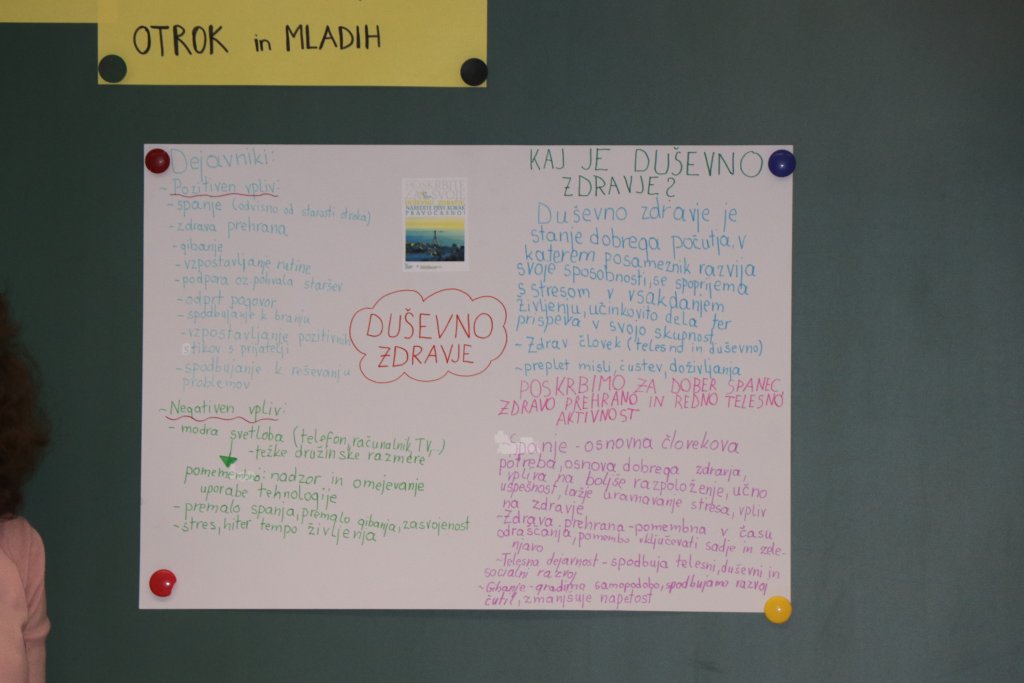 OTROK in MLADIH
Dejavniki:
~ Pozitiven vpliv:
- spanje (odvisno od starosti otroka)
- zdrava prehrana
- gibanje
- vzpostavljanje rutine
- podpora oz. pohvala staršev
- odprt pogovor
- spodbujanje k branju
- vzpostavljanje pozitivnih
stikov s prijatelji
- spodbujanje k reševanju
problemov
~ Negativen vpliv:
- modra svetloba (telefon, računalnik, TV,..)
- težke družinske razmere
pomembno: nadzor in omejevanje
uporabe tehnologije
- premalo spanja, premalo gibanja, zasvojenost
- stres, hiter tempo življenja
POSKRBITE
ZA SVOJE
DUŠEVNO ZDRAVJE
NAREDITE PRVI KORAK
PRAVOČASNO!
DUŠEVNO
ZDRAVJE
KAJ JE DUŠEVNO
ZDRAVJE?
Duševno zdravje je
stanje dobrega počutja, v
katerem posameznik razvija
svoje sposobnosti, se spoprijema
s stresom v vsakdanjem
življenju, učinkovito dela ter
prispeva v svojo skupnost.
~ Zdrav človek (telesno in duševno)
~ preplet misli, čustev, doživljanja
POSKRBIMO ZA DOBER SPANEC,
ZDRAVO PREHRANO IN REDNO TELESNO
AKTIVNOST
Spanje - osnovna človekova
potreba, osnova dobrega zdravja,
vpliva na boljše razpoloženje, učno
uspešnost, lažje uravnavanje stresa, vpliv
na zdravje
~ Zdrava prehrana - pomembna v času
odraščanja, pomembo vključevati sadje in zele-
njavo
~ Telesna dejavnost - spodbuja telesni, duševni in
socialni razvoj
~ Gibanje - gradimo samopodobo, spodbujamo razvoj
čutil, zmanjšuje napetost